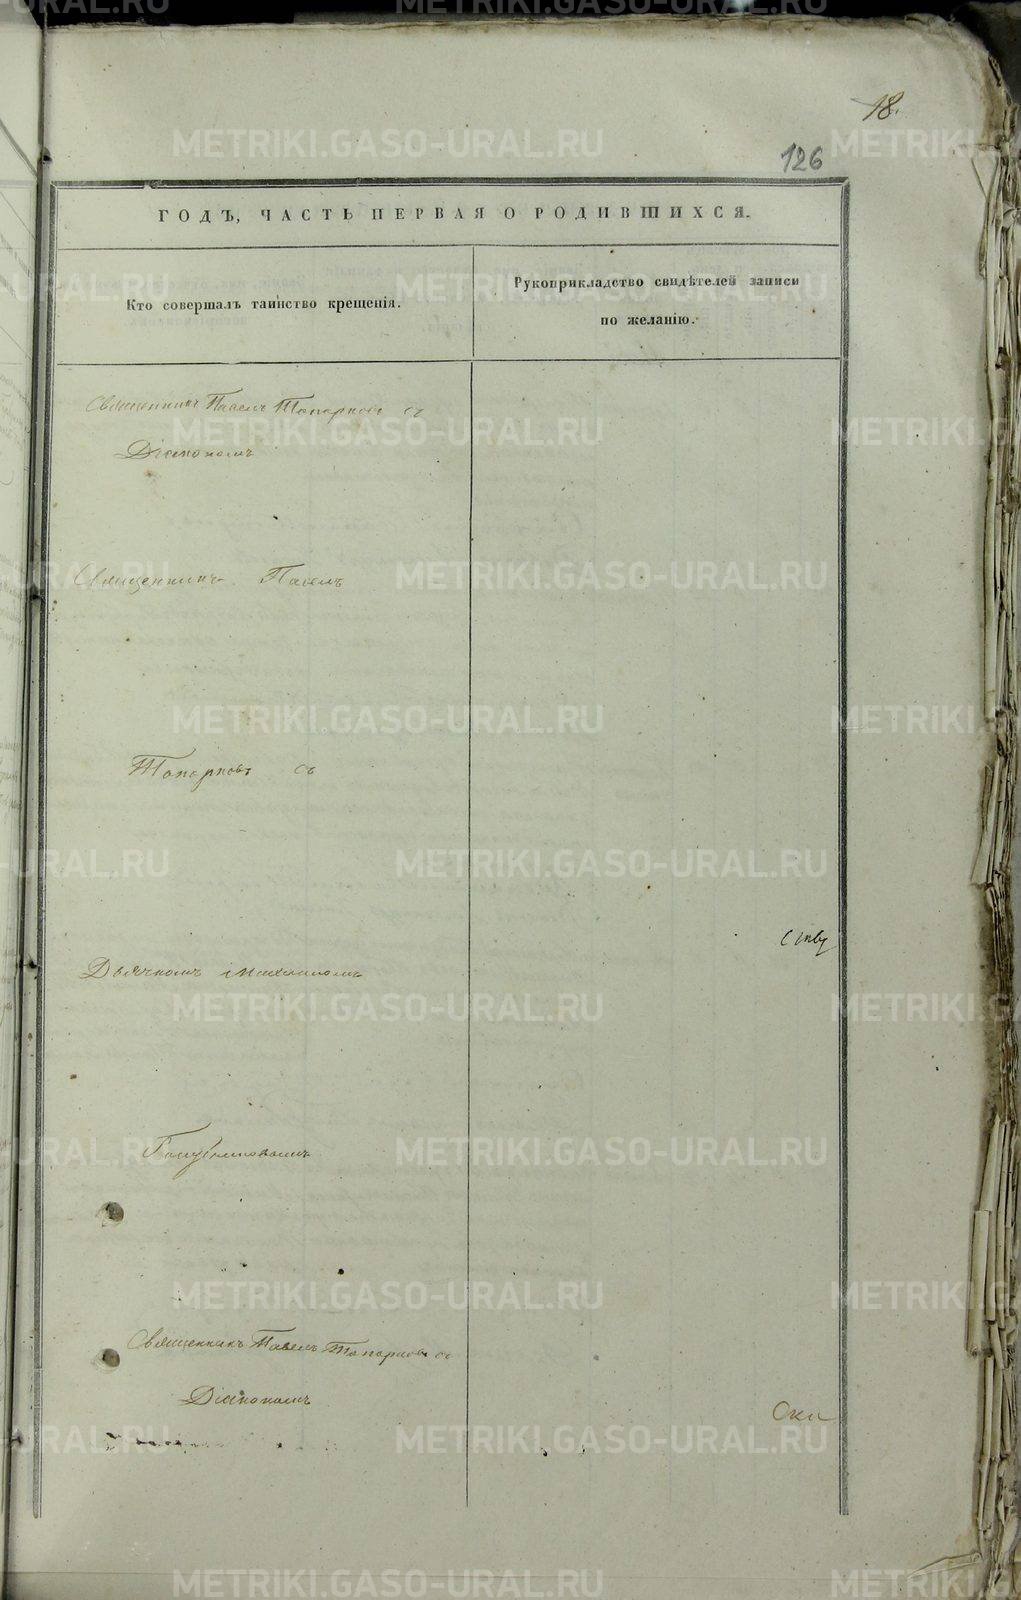 18.
126
ГОДЪ, ЧАСТЬ ПЕРВАЯ О РОДИВШИХСЯ.
Кто совершалъ таинство крещенія.
Рукоприкладство свидѣтелей записи
по желанію.
Священникъ Павелъ Топорковъ съ
Діакономъ
Священникъ Павелъ
Топорковъ съ
Дьячкомъ
Священникъ Павелъ Топорковъ съ
Діакономъ
METRIKI.GASO-URAL.RU